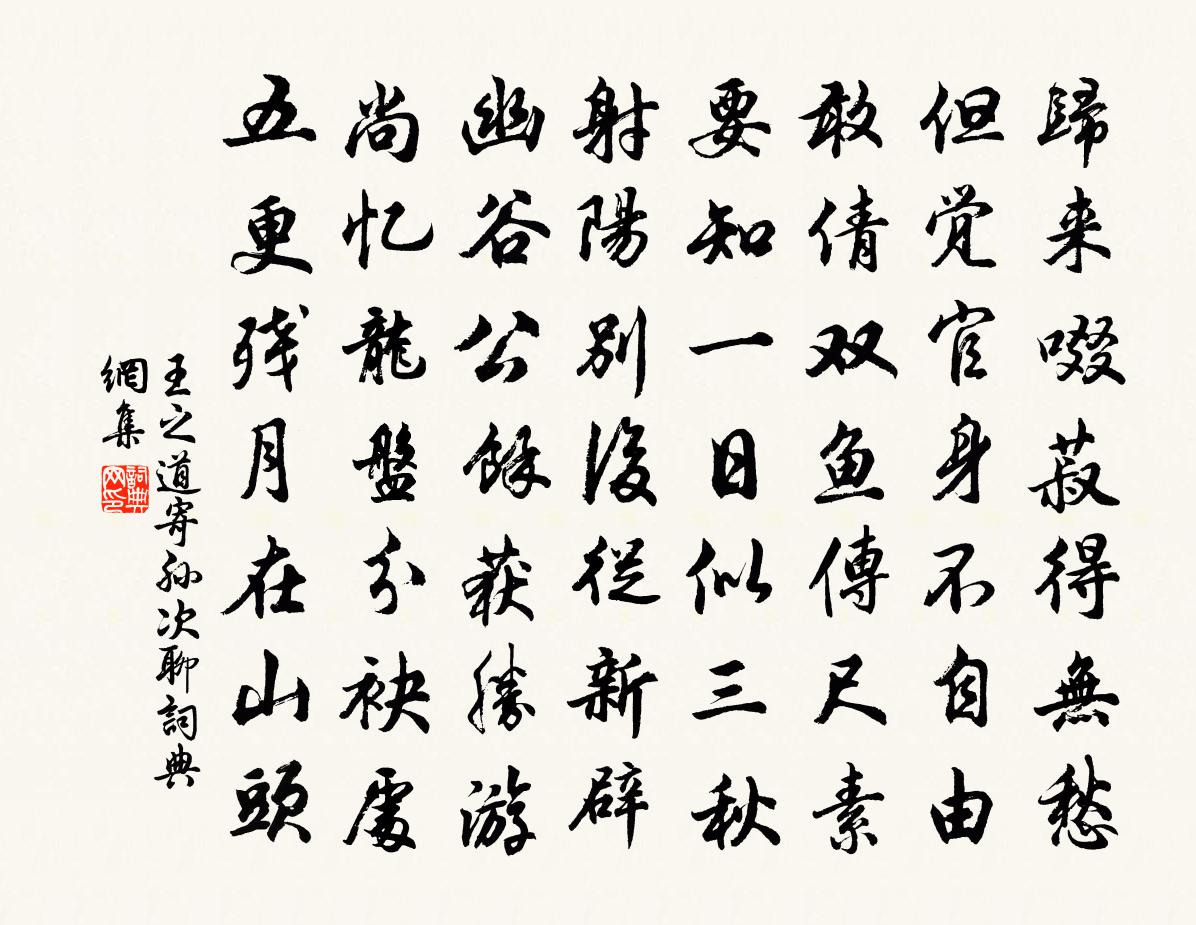 歸来啜菽得無愁
但觉官身不自由
敢倩双鱼傳尺素
要知一日似三秋
射陽別後從新辟
幽谷公餘获勝游
尚忆龍盤分袂處
五更残月在山頭
王之道寄孙次聊詞典
網集
詞典网印